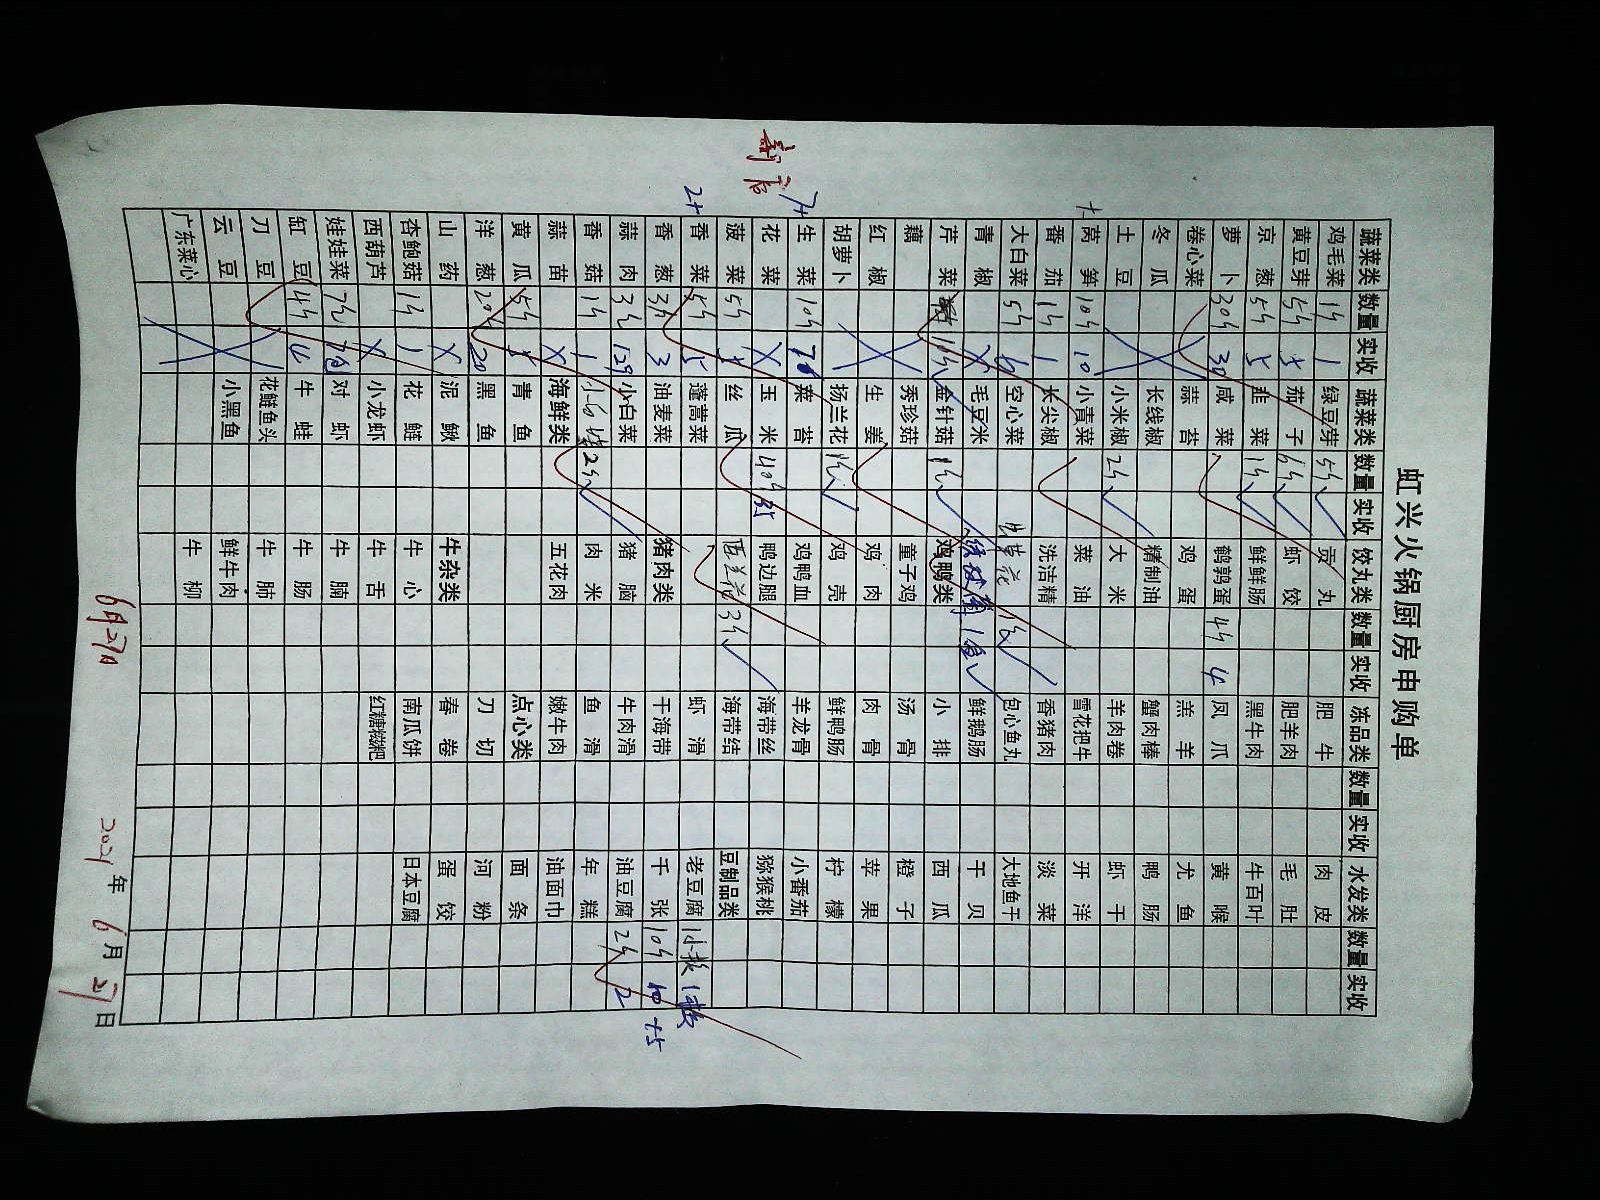 虹兴火锅厨房申购单
蔬菜类 数量 实收 蔬菜类 数量 实收 饺丸类 数量 实收 冻品类 数量 实收 水发类 数量 实收
鸡毛菜 1斤 1 绿豆芽 5斤 贡丸 肥牛 肉皮
黄豆芽 5斤 5 茄子 6斤 虾饺 肥羊肉 毛肚
京葱 5斤 5 韭菜 1斤 鲜鲜肠 黑牛肉 牛百叶
萝卜 30斤 30 咸菜 鹌鹑蛋 4斤 4 凤爪 黄喉
卷心菜 蒜苔 鸡蛋 羔羊 尤鱼
冬瓜 长线椒 精制油 蟹肉棒 鸭肠
土豆 小米椒 2斤 大米 羊肉卷 虾干
莴笋 10斤 10 小青菜 菜油 雪花把牛 开洋
番茄 1斤 1 长尖椒 洗洁精 香猪肉 淡菜
大白菜 5斤 6 空心菜 包心鱼丸 大地鱼干
青椒 毛豆米 鲜鹅肠 干贝
芹菜 金针菇 鸡鸭类 小排 西瓜
藕 秀珍菇 童子鸡 汤骨 橙子
红椒 生姜 鸡肉 肉骨 苹果
胡萝卜 扬兰花 鸡壳 鲜鸭肠 柠檬
生菜 10斤 菜苔 鸡鸭血 羊龙骨 小番茄
花菜 玉米 40斤 鸭边腿 海带丝 猕猴桃
菠菜 5斤 5 丝瓜 3斤 海带结 豆制品类
2+ 香菜 5斤 5 蓬蒿菜 虾滑 老豆腐
香葱 3斤 3 油麦菜 猪肉类 干海带 千张 10斤 10 +5
蒜肉 小白菜 猪脑 牛肉滑 油豆腐 2斤 2
香菇 1斤 1 2斤 肉米 鱼滑 年糕
蒜苗 海鲜类 五花肉 嫩牛肉 油面巾
黄瓜 5斤 5 青鱼 点心类 面条
洋葱 20斤 20 黑鱼 刀切 河粉
山药 泥鳅 牛杂类 春卷 蛋饺
杏鲍菇 1斤 1 花鲢 牛心 南瓜饼 日本豆腐
西葫芦 小龙虾 牛舌 红糖糍粑
娃娃菜 对虾 牛腩
缸豆 4斤 4 牛蛙 牛肠
刀豆 花鲢鱼头 牛肺
云豆 小黑鱼 鲜牛肉
广东菜心 牛柳
6月27日
2021年6月27日